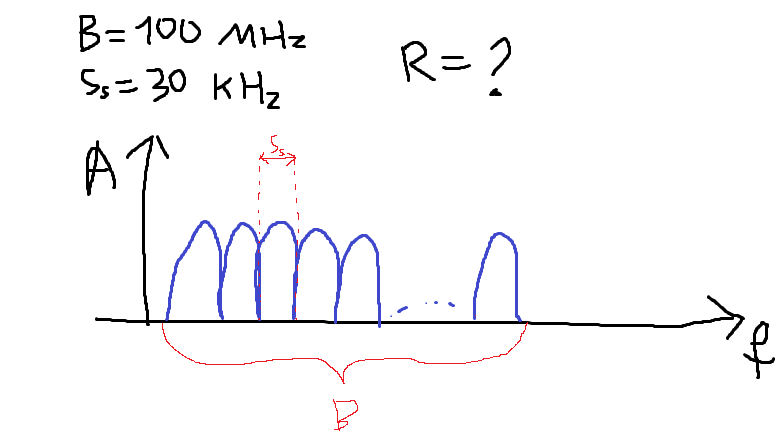 B=100 MHz
R=?
Ss=30 KHz
Ss
A
f
B